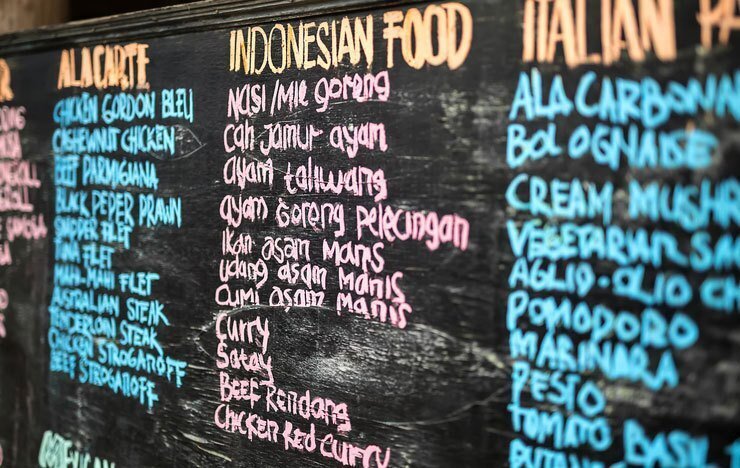 ALA CARTE
CHICKEN GORDON BLEU
CASHEWNUT CHICKEN
BEEF PARMIGIANA
BLACK PEPER PRAWN
SNAPPER FILET
TUNA FILET
MAHI-MAHI FILET
AUSTRALIAN STEAK
TENDERLOIN STEAK
CHICKEN STROGANOFF
BEEF STROGANOFF
INDONESIAN FOOD
NASI/MIE goreng
cah jamur ayam
ayam taliwang
ayam Goreng pelecingan
Ikan asam Manis
udang asam Manis
Cumi asam Manis
Curry
Satay
Beef Rendang
Chicken Red curry
ITALIAN PA
ALA CARBONN
BOLOGNAISE
CREAM MUSHR
VEGETARIAN SA
AGLIO-OLIO CH
POMODORO
MARINARA
PESTO
TOMATO BASIL